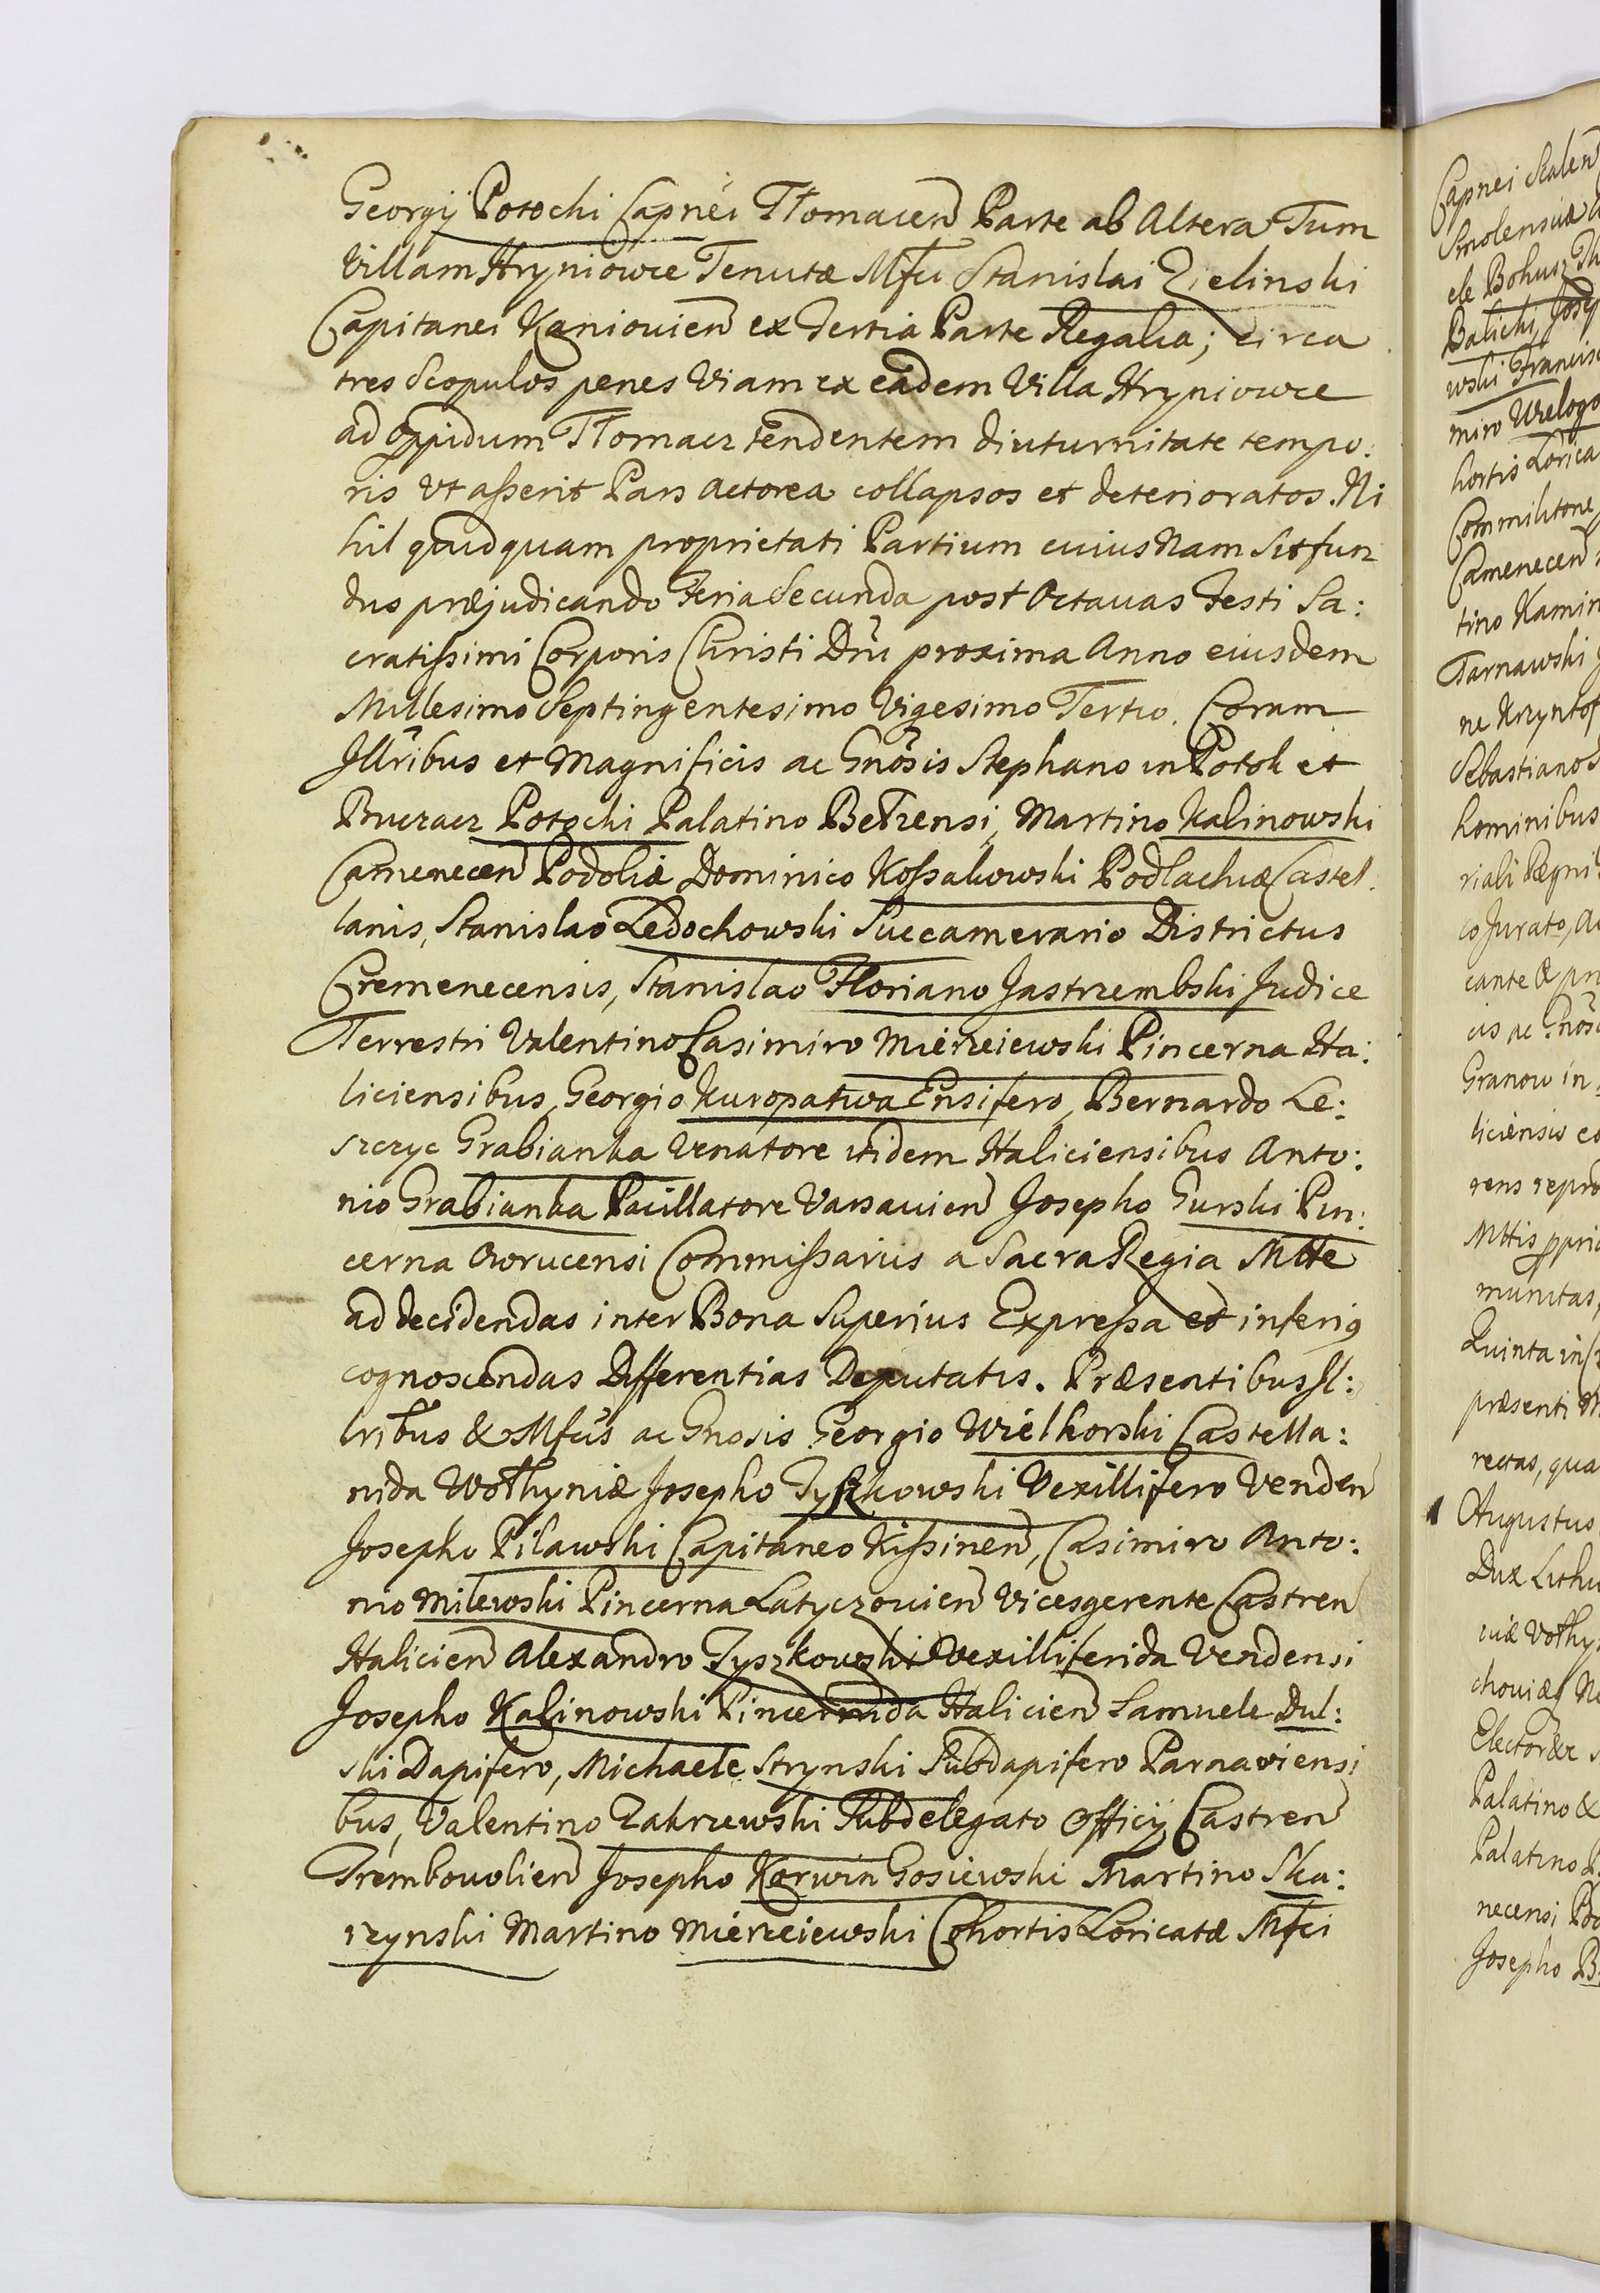 Georgij Potocki Capnei Tłomacen Parte ab Altera Tum
Villam Hryniowce Tenutæ Mfci Stanislai Zielinski
Capitanei Kaniovien ex Tertia Parte Regalia; circa
tres Scopulos penes Viam ex eadem Villa Hryniowce
ad Oppidum Tłomacz tendentem diuturnitate tempo:
ris Vt asserit Pars Actorea collapsos et deterioratos. Ni
hil quidquam proprietati Partium cuius Nam sit fun
dus præjudicando Feria Secunda post Octavas Festi Sa:
cratissimi Corporis Christi Dni proxima Anno eiusdem
Millesimo Septingentesimo Vigesimo Tertio. Coram
Illribus et Magnificis ac Gnosis Stephano in Potok et
Buczacz Potocki Palatino Bełzensi, Martino Kalinowski
Camenecen Podoliæ Dominico Kossakowski Podlachiæ Castel
lanis, Stanislao Ledochowski Succamerario Districtus
Cremenecensis, Stanislao Floriano Jastrzembski Judice
Terrestri Valentino Casimiro Mierzeiewski Pincerna Ha:
liciensibus, Georgio Kuropatwa Ensifero, Bernardo Le:
szczyc Grabianka Venatore itidem Haliciensibus Anto:
nio Grabianka Pocillatore Varsavien Josepho Gurski Pin:
cerna Owrucensi Commissariis a Sacra Regia Mtte
ad decidendas inter Bona Superius Expressa et inferig
cognoscendas Differentias Deputatis. Præsentibus Il:
lribus & Mfcis ac Gnosis Georgio Wielhorski Castella:
nida Wołhyniæ Josepho Tyszkowski Vexillifero Venden
Josepho Pilawski Capitaneo Kissinen, Casimiro Anto:
nio Milewski Pincerna Latyczovien Vicesgerente Castren
Halicien Alexandro Tyszkowski Vexilliferida Vendensi
Josepho Kalinowski Pincernida Halicien Samuele Dul:
ski Dapifero, Michaele Strynski Subdapifero Parnaviensi
bus, Valentino Zakrzewski Subdelegato Officij Castren
Trembovolien Josepho Korwin Gosiewski Martino Ska:
rzynski Martino Mierzeiewski Cohortis Loricatæ Mfci
Capnei
Smolensciæ
ele Bohusz
Balicki, Josep
wski Francis
miro Wielogo
hortis Lorica
Commilitone
Camenecen
tino Kamin
Tarnawski
ne Krzysztof
Sebastiano
hominibus
riali Regni
co Jurato, Ac
cante & pr
cis ac Gnos
Granow in
liciensis
rens repro
Mttis ppria
munitas,
Quinta in
præsenti
rectas, qua
Augustus
Dux Lithu
viæ Vołhy
choviæq
Elector
Palatino &
Palatino
necensi Pod
Josepho B